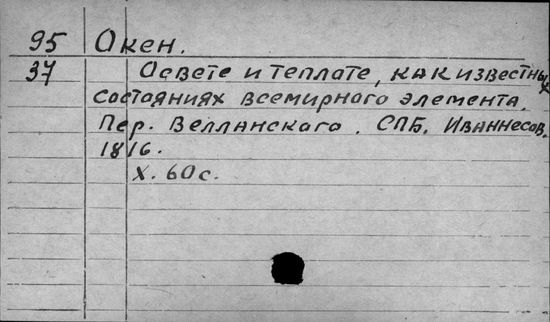 95 Окен.
37 О свете и теплате, как известных
состояниях всемирного элемента.
Пер. Велланского. СПБ. Иваннесов.
1816.
X. 60 с.